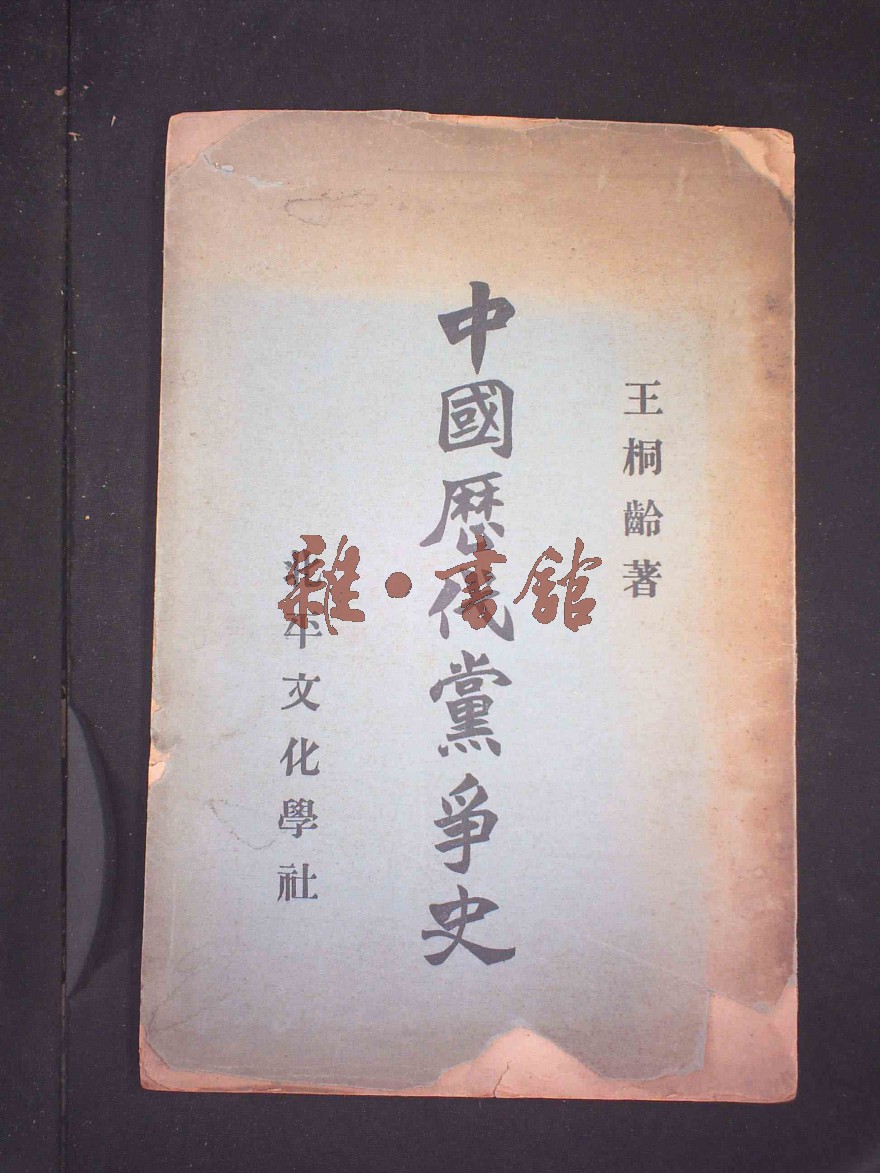 王桐齡著
中國歷代黨爭史
北平文化學社
雜·書館